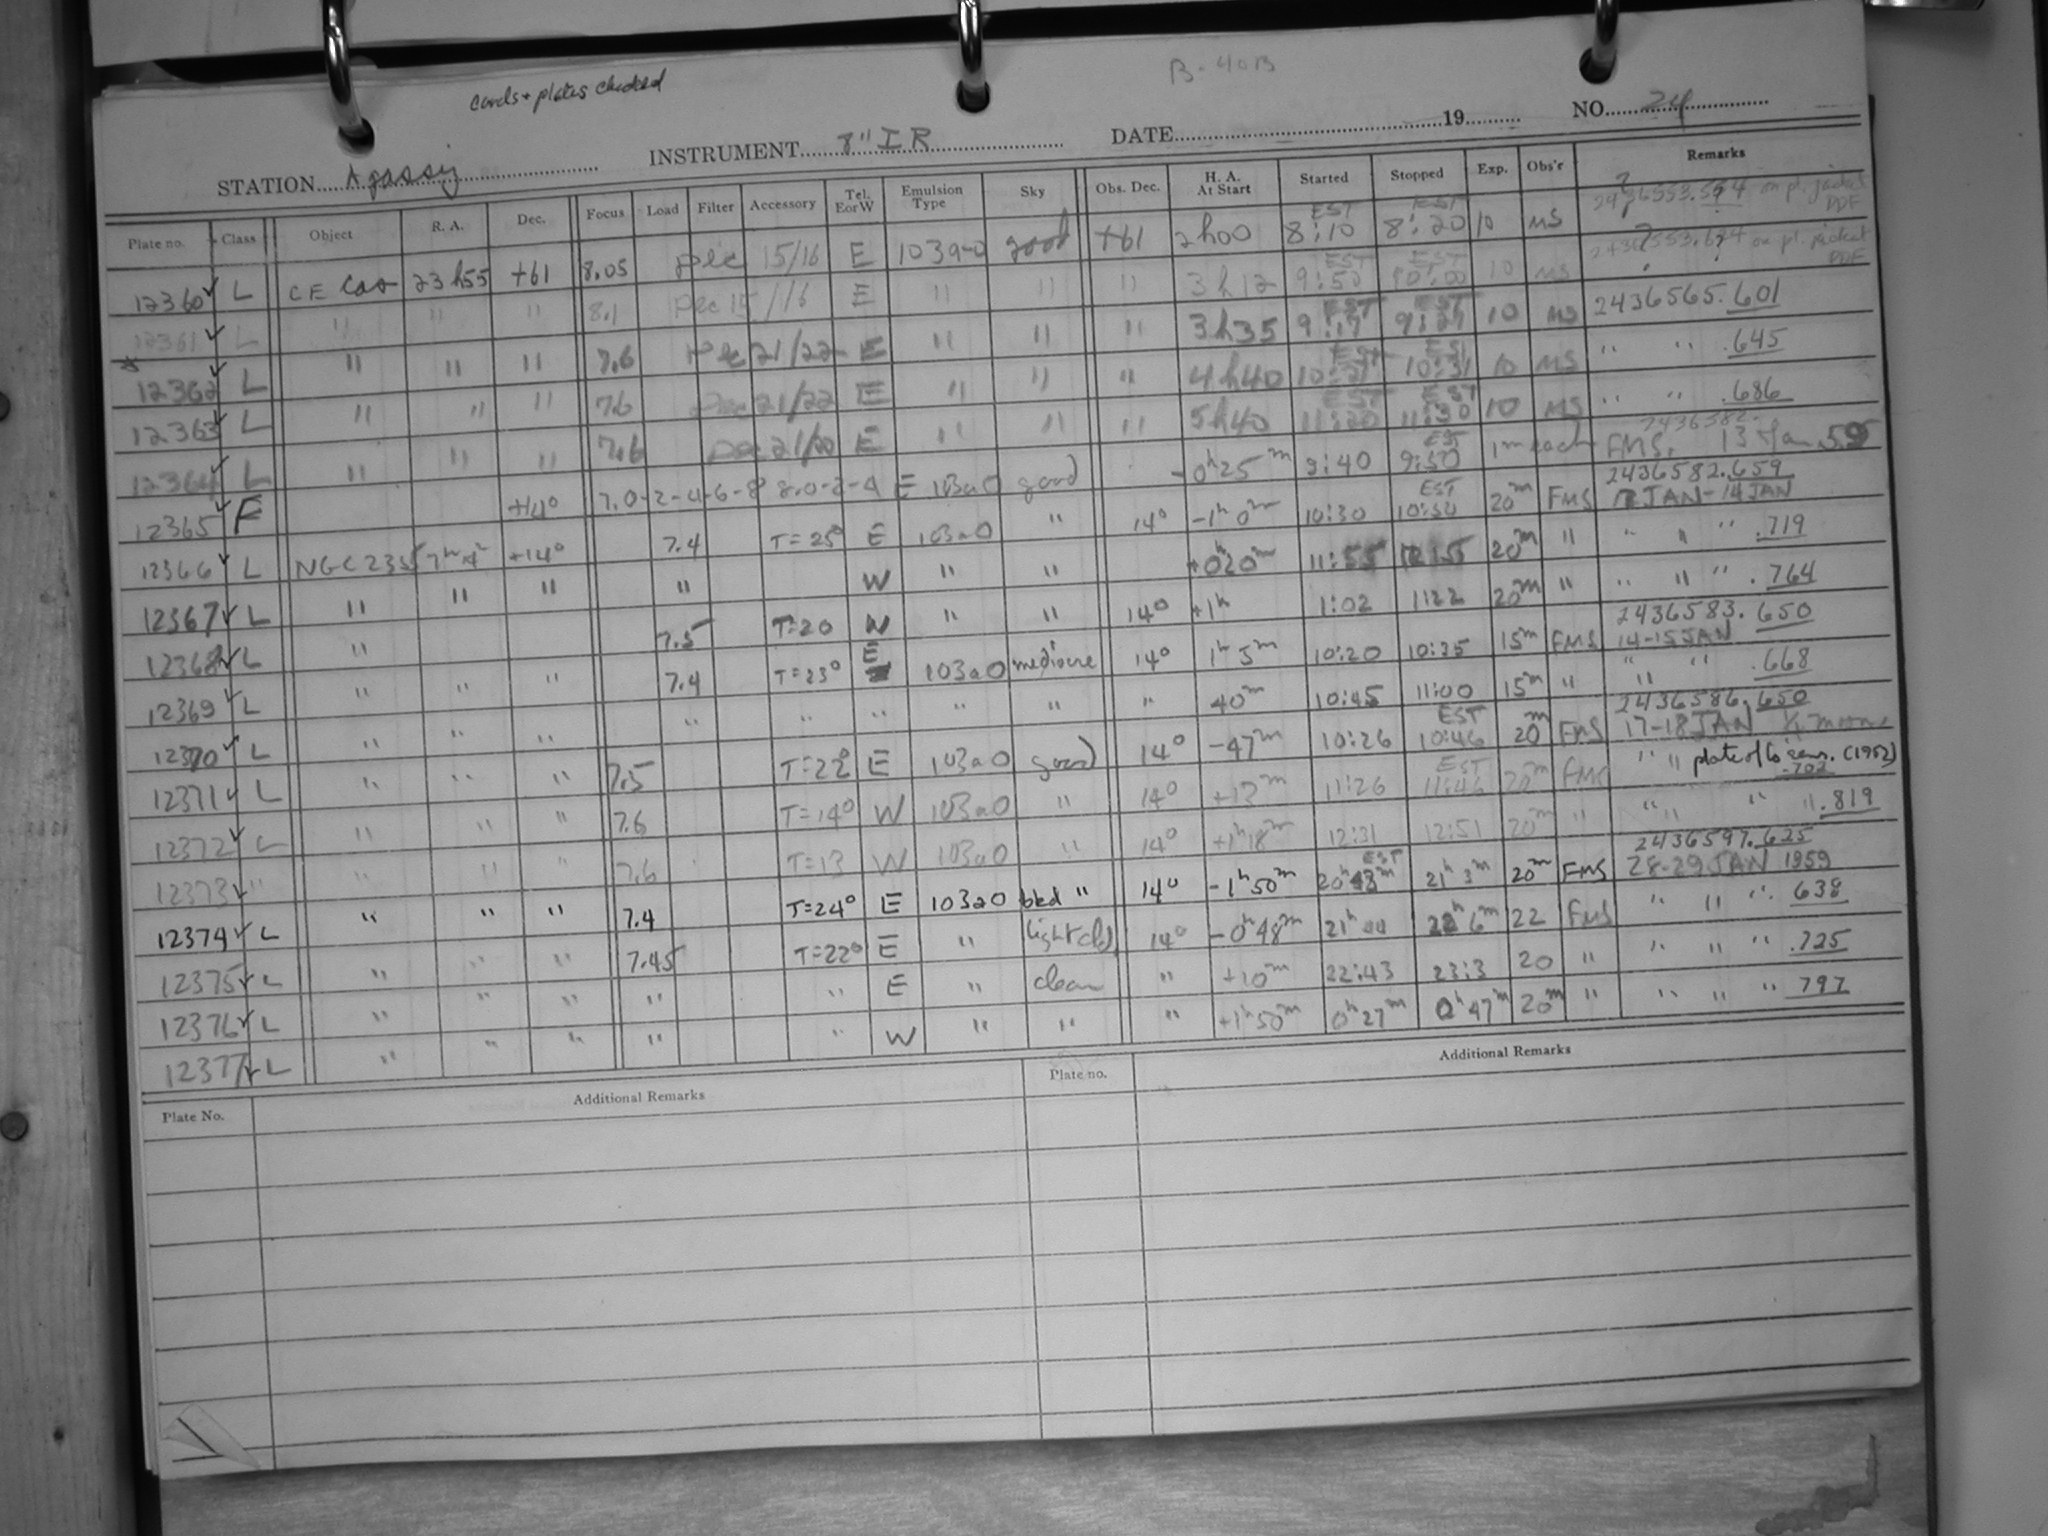 cards + plates checked
B-40B
STATION Agassiz INSTRUMENT 8" IR DATE 19 NO. 24
Plate no. Class Object R. A. Dec. Focus Load Filter Accessory Tel. E or W Emulsion Type Sky Obs. Dec. H. A. At Start Started Stopped Exp. Obs'r Remarks
12360 ✓ L CE Cas 23h55 +61 8.05 Dec 15/16 E 103a-O good +61 2h00 EST 8:10 EST 8:20 10 MS ? 2436553.594 on pl. jacket PDF
12361 ✓ L " " " 8.1 Dec 15/16 E " " " 3h12 EST 9:50 EST 10:00 10 MS ? 2436553.624 on pl. jacket PDF
12362 ✓ L " " " 7.6 Dec 21/22 E " " " 3h35 EST 9:17 EST 9:27 10 MS 2436565.601
12363 ✓ L " " " 7.6 Dec 21/22 E " " " 4h40 EST 10:21 EST 10:31 10 MS " " .645
12364 ✓ L " " " 7.6 Dec 21/20 E " " " 5h40 EST 11:20 EST 11:30 10 MS " " .686
12365 ✓ F +14° 7.0-2-4-6-8 8.0-2-4 E 103a0 good -0h25m 9:40 EST 9:50 1m each 2436582. FMS. 13 Jan. 59
12366 ✓ L NGC 2355 +14° 7.4 T=25° E 103a0 " 14° -1h 0m 10:30 EST 10:50 20m FMS 2436582.659 JAN-14 JAN
12367 ✓ L " " " " W " " +0 20m 11:55 12:15 20m " " " " .719
12368 ✓ L " 7.5 T=20 W " " 14° +1h 1:02 1:22 20m " " " " .764
12369 ✓ L " " " 7.4 T=23° E 103a0 mediocre 14° 1h 5m 10:20 10:35 15m FMS 2436583.650 14-15 JAN
12370 ✓ L " " " " " " " " " 40m 10:45 11:00 15m " " " .668
12371 ✓ L " " " 7.5 T=22° E 103a0 good 14° -47m 10:26 EST 10:46 20m FMS 2436586.650 17-18 JAN
12372 ✓ L " " " 7.6 T=14° W 103a0 " 14° +13m 11:26 EST 11:46 20m FMS " " plate of (1952) .702
12373 ✓ " " " " 7.6 T=13 W 103a0 " 14° +1h18m 12:31 12:51 20m " " " " " .819
12374 ✓ L " " " 7.4 T=24° E 103a0 bad " 14° -1h50m 20h43m EST 21h 3m 20m FMS 2436597.625 28-29 JAN 1959
12375 ✓ L " " " 7.45 T=22° E " light cld 14° -0h48m 21h 44 22h 6m 22 FMS " " " .638
12376 ✓ L " " " " " E " clear " +10m 22:43 23:3 20 " " " " .725
12377 ✓ L " " " " " W " " " +1h50m 0h27m 0h47m 20m " " " " 797
Plate No. Additional Remarks Plate no. Additional Remarks